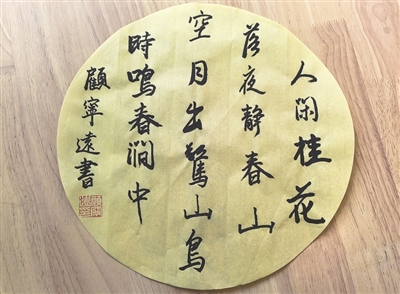 人閑桂花
落夜靜春山
空月出驚山鳥
時鳴春澗中
顧寧遠書